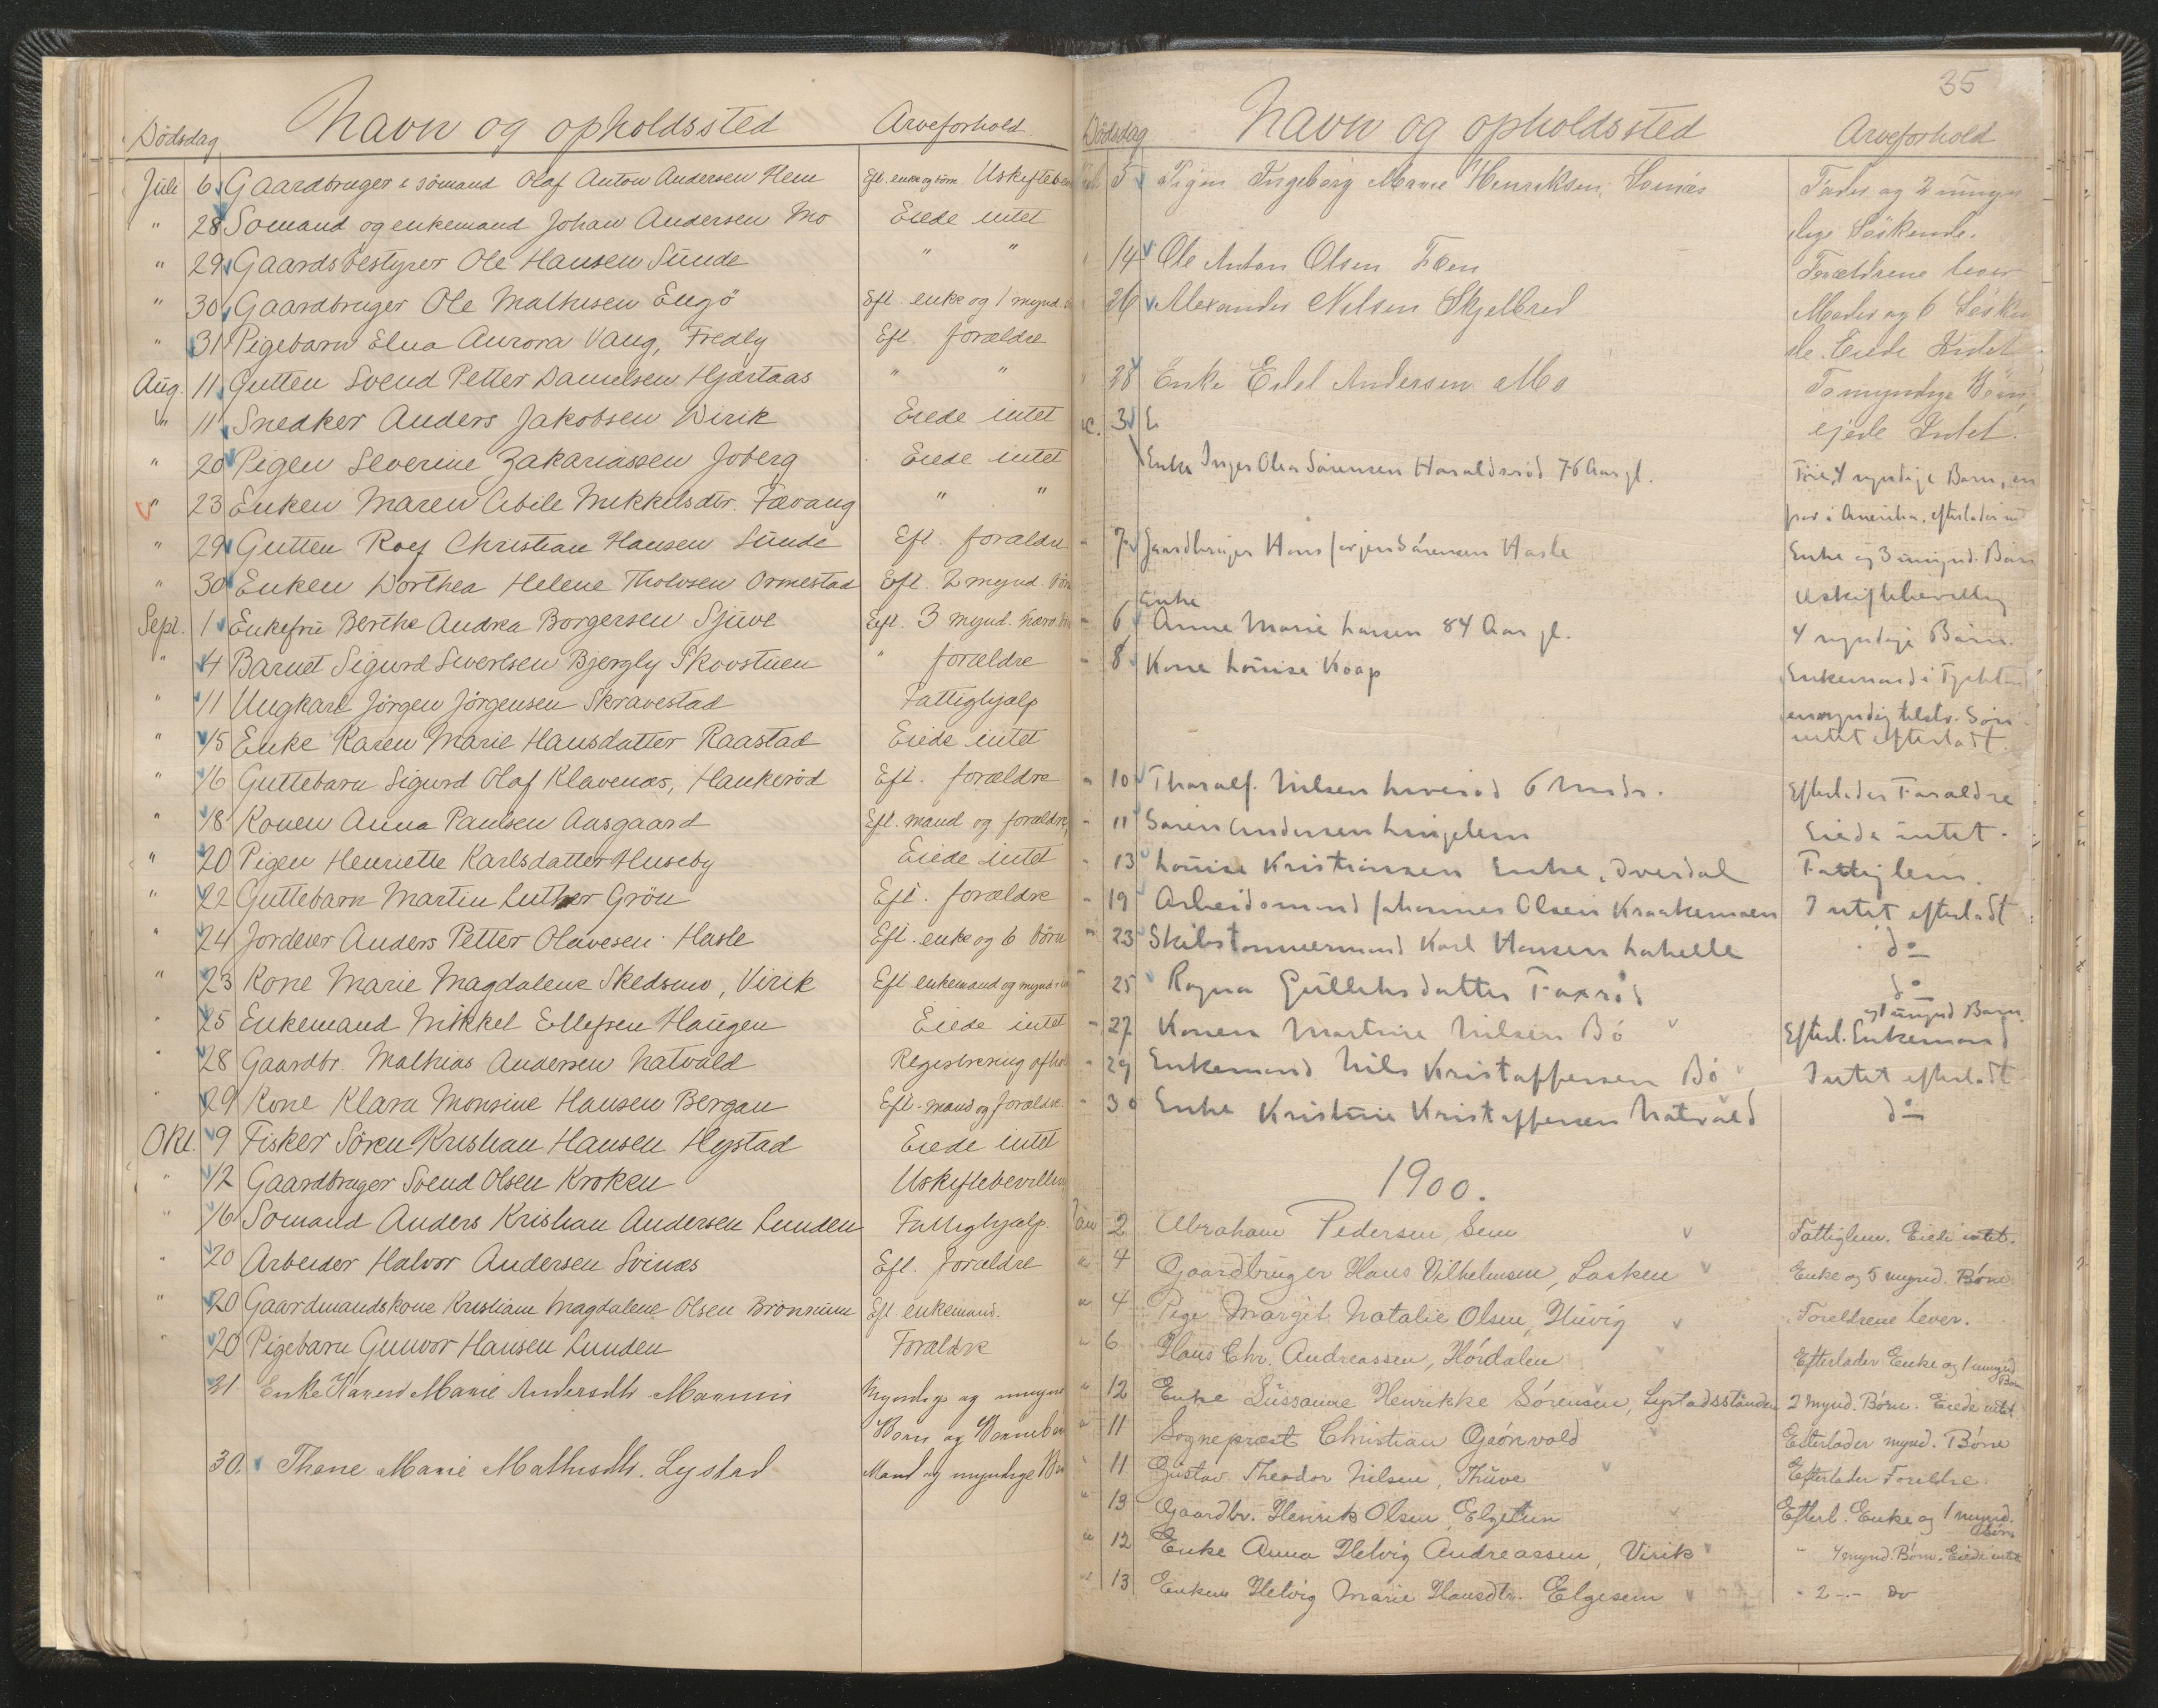 Dödsdag Navn og opholdssted Arveforhold
Juli 6 Gaardbruger & sömand Olaf Anton Andersen Hem Eft. enke og börn Uskifteb
" 28 Sömand og enkemand Johan Andersen Mo Eiede intet
" 29 Gaardsbestyrer Ole Hansen Sunde " "
" 30 Gaardbruger Ole Mathisen Engö Eft. enke og 1 mynd.
" 31 Pigebarn Elna Aurora Vang, Fredly Eft. forældre
Aug. 11 Gutten Svend Petter Danielsen Hjertaas " "
" 11 Snedker Anders Jakobsen Virik Eiede intet
" 20 Pigen Severine Zakariassen Joberg Eiede intet
" 23 Enken Maren Abile Mikkelsdtr. Fævang " "
" 29 Gutten Rolf Christian Hansen Sunde Eft. forældre
" 30 Enken Dorthea Helene Tholvsen Ormestad Eft. 2 mynd. börn
Sept. 1 Enkefru Berthe Andrea Borgersen Sjuve Eft. 3 mynd.
" 4 Barnet Sigurd Sivertsen Bjergly Skovstuen " forældre
" 11 Ungkarl Jörgen Jörgensen Skravestad Fattighjælp
" 15 Enke Karen Marie Hansdatter Raastad Eiede intet
" 16 Guttebarn Sigurd Olaf Klavenæs, Haukeröd Eft. forældre
" 18 Konen Anna Paulsen Aasgaard Eft. mand og forældre
" 20 Pigen Henriette Karlsdatter Huseby Eiede intet
" 22 Guttebarn Martin Luther Grön Eft. forældre
" 24 Jordeier Anders Petter Olavesen Hasle Eft. enke og 6 börn
" 23 Kone Marie Magdalene Skedsmo, Virik Eft enkemand og mynd.
" 25 Enkemand Mikkel Ellefsen Haugen Eiede intet
" 28 Gaardbr. Mathias Andersen Natvald Registrering afho
" 29 Kone Klara Monsine Hansen Bergan Eft. mand og forældre
Okt. 9 Fisker Sören Kristian Hansen Hystad Eiede intet
" 12 Gaardbruger Svend Olsen Kroken Uskiftebevilling
" 16 Sömand Anders Kristian Andersen Lunden Fattighjælp
" 20 Arbeider Halvor Andersen Svinæs Eft. forældre
" 20 Gaardmandskone Kristiane Magdalene Olsen Brönnum Eft enkemand.
" 20 Pigebarn Gunvor Hansen Lunden Forældre
21 Enke Karen Marie Andersdtr. Myndige og umynd
Börn og Börnebörn
30. Thene Marie Mathisdtr. Lystad Mand og myndige
35
Dödsdag Navn og opholdssted Arveforhold
5 Pigen Ingeborg Marie Henriksen, Svinæs Fader og 2 umyn
dige Söskende.
14 Ole Anton Olsen Fæn Forældrene lever
26 Alexander Nilsen Skjelbred Moder og 6 Sösken
de. Eiede Intet
28 Enke Edel Andersen Mo To myndige Börn,
ejede Intet.
3 E
Enke Inger Olea Sörensen Haraldsröd 76 Aar gl. Fire, 4 myndige Barn, en
par i Amerika, efterlader
" 7 Gaardbruger Hans Jörgen Sörensen Hasle Enke og 3 umynd. Barn
Uskiftebevilling
Enke
" 6 Anne Marie Larsen 84 Aar gl. 4 myndige Barn.
" 8 Kone Louise Koap Enkemand i Tyskland
en myndig Sön
intet efterladt.
" 10 Tharalf Nilsen 6 Mndr. Efterlader Forældre
" 11 Sören Andersen Lingelem Eiede intet.
" 13 Louise Kristiansen Enke, Dverdal Fattiglem.
" 19 Arbeidsmand Johannes Olsen Kraakemoen Intet efterladt
" 23 Skibstömmermand Karl Hansen Lahelle do
" 25 Ragna Gulleksdatter Faxröd do
og 1 umynd Barn.
" 27 Konen Martine Nilsen Bö Efterl. Enkemand
" 29 Enkemand Nils Kristoffersen Bö Intet efterladt
" 30 Enke Kristine Kristoffersen Natvald do
1900.
Jan 2 Abraham Pedersen, Sem Fattiglem. Eiede intet.
" 4 Gaardbruger Hans Vilhelmsen, Lasken Enke og 5 mynd. Börn
" 4 Pige Margit Natalie Olsen, Huvig Foreldrene lever.
" 6 Hans Chr. Andreassen, Hördalen Efterlader Enke og 1 umynd
Barn
" 12 Enke Sussanne Henrikke Sörensen, Lystadsstranden 2 mynd. Börn. Eiede intet
" 11 Sogneprest Christian Grönvold Efterlader mynd. Börn
" 11 Gustav Theodor Nilsen, Thuve Efterlader Foreldre.
" 13 Gaardbr. Henrik Olsen, Elgetun Efterl. Enke og 1 mynd.
Sön
" 12 Enke Anna Helvig Andreassen, Virik " 4 mynd. Börn. Eiede intet
" 13 Enken Helvig Marie Hansdtr. Elgesem " 2 -.- do